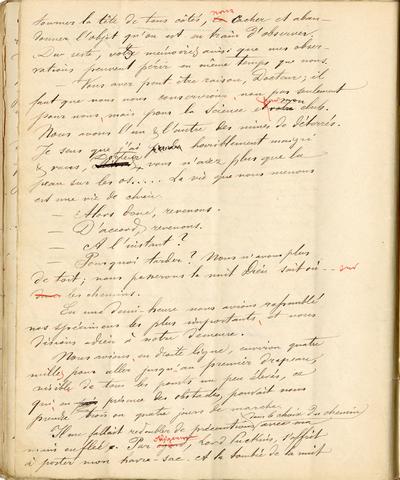 tourner la tête de tous côtés, nous cacher et aban-
donner l'objet qu'on est en train d'observer.
Du reste, vos mémoires, ainsi que mes obser-
vations peuvent périr en même temps que nous.
— Vous avez peut-être raison, Docteur; il
faut que nous nous conservions non pas seulement
pour nous, mais pour la science mon club.
Nous avons l'un & l'autre des mines de déterrés.
Je sens que j'ai horriblement maigri
& vous, Docteur, vous n'avez plus que la
peau sur les os..... La vie que nous menons
est une vie de chien.
— Alors donc, revenons.
— D'accord, revenons.
— A l'instant?
— Pourquoi tarder? Nous n'avons plus
de toit; nous passerons la nuit ici soit où... sur
les chemins.
En une demi-heure nous avions rassemblé
nos spécimens les plus importants, et nous
disions adieu à notre demeure.
Nous avions, en droite ligne, environ quatre
milles pour aller jusqu'au premier drapeau,
visible de tous les points un peu élevés, ce
qui, en présence des obstacles, pouvait nous
prendre trois ou quatre jours de marche.
Il me fallait redoubler de précautions avec ma dans le choix du chemin
main enflée. Par, Lord Puckins, s'offrit
à porter mon havre-sac. A la tombée de la nuit